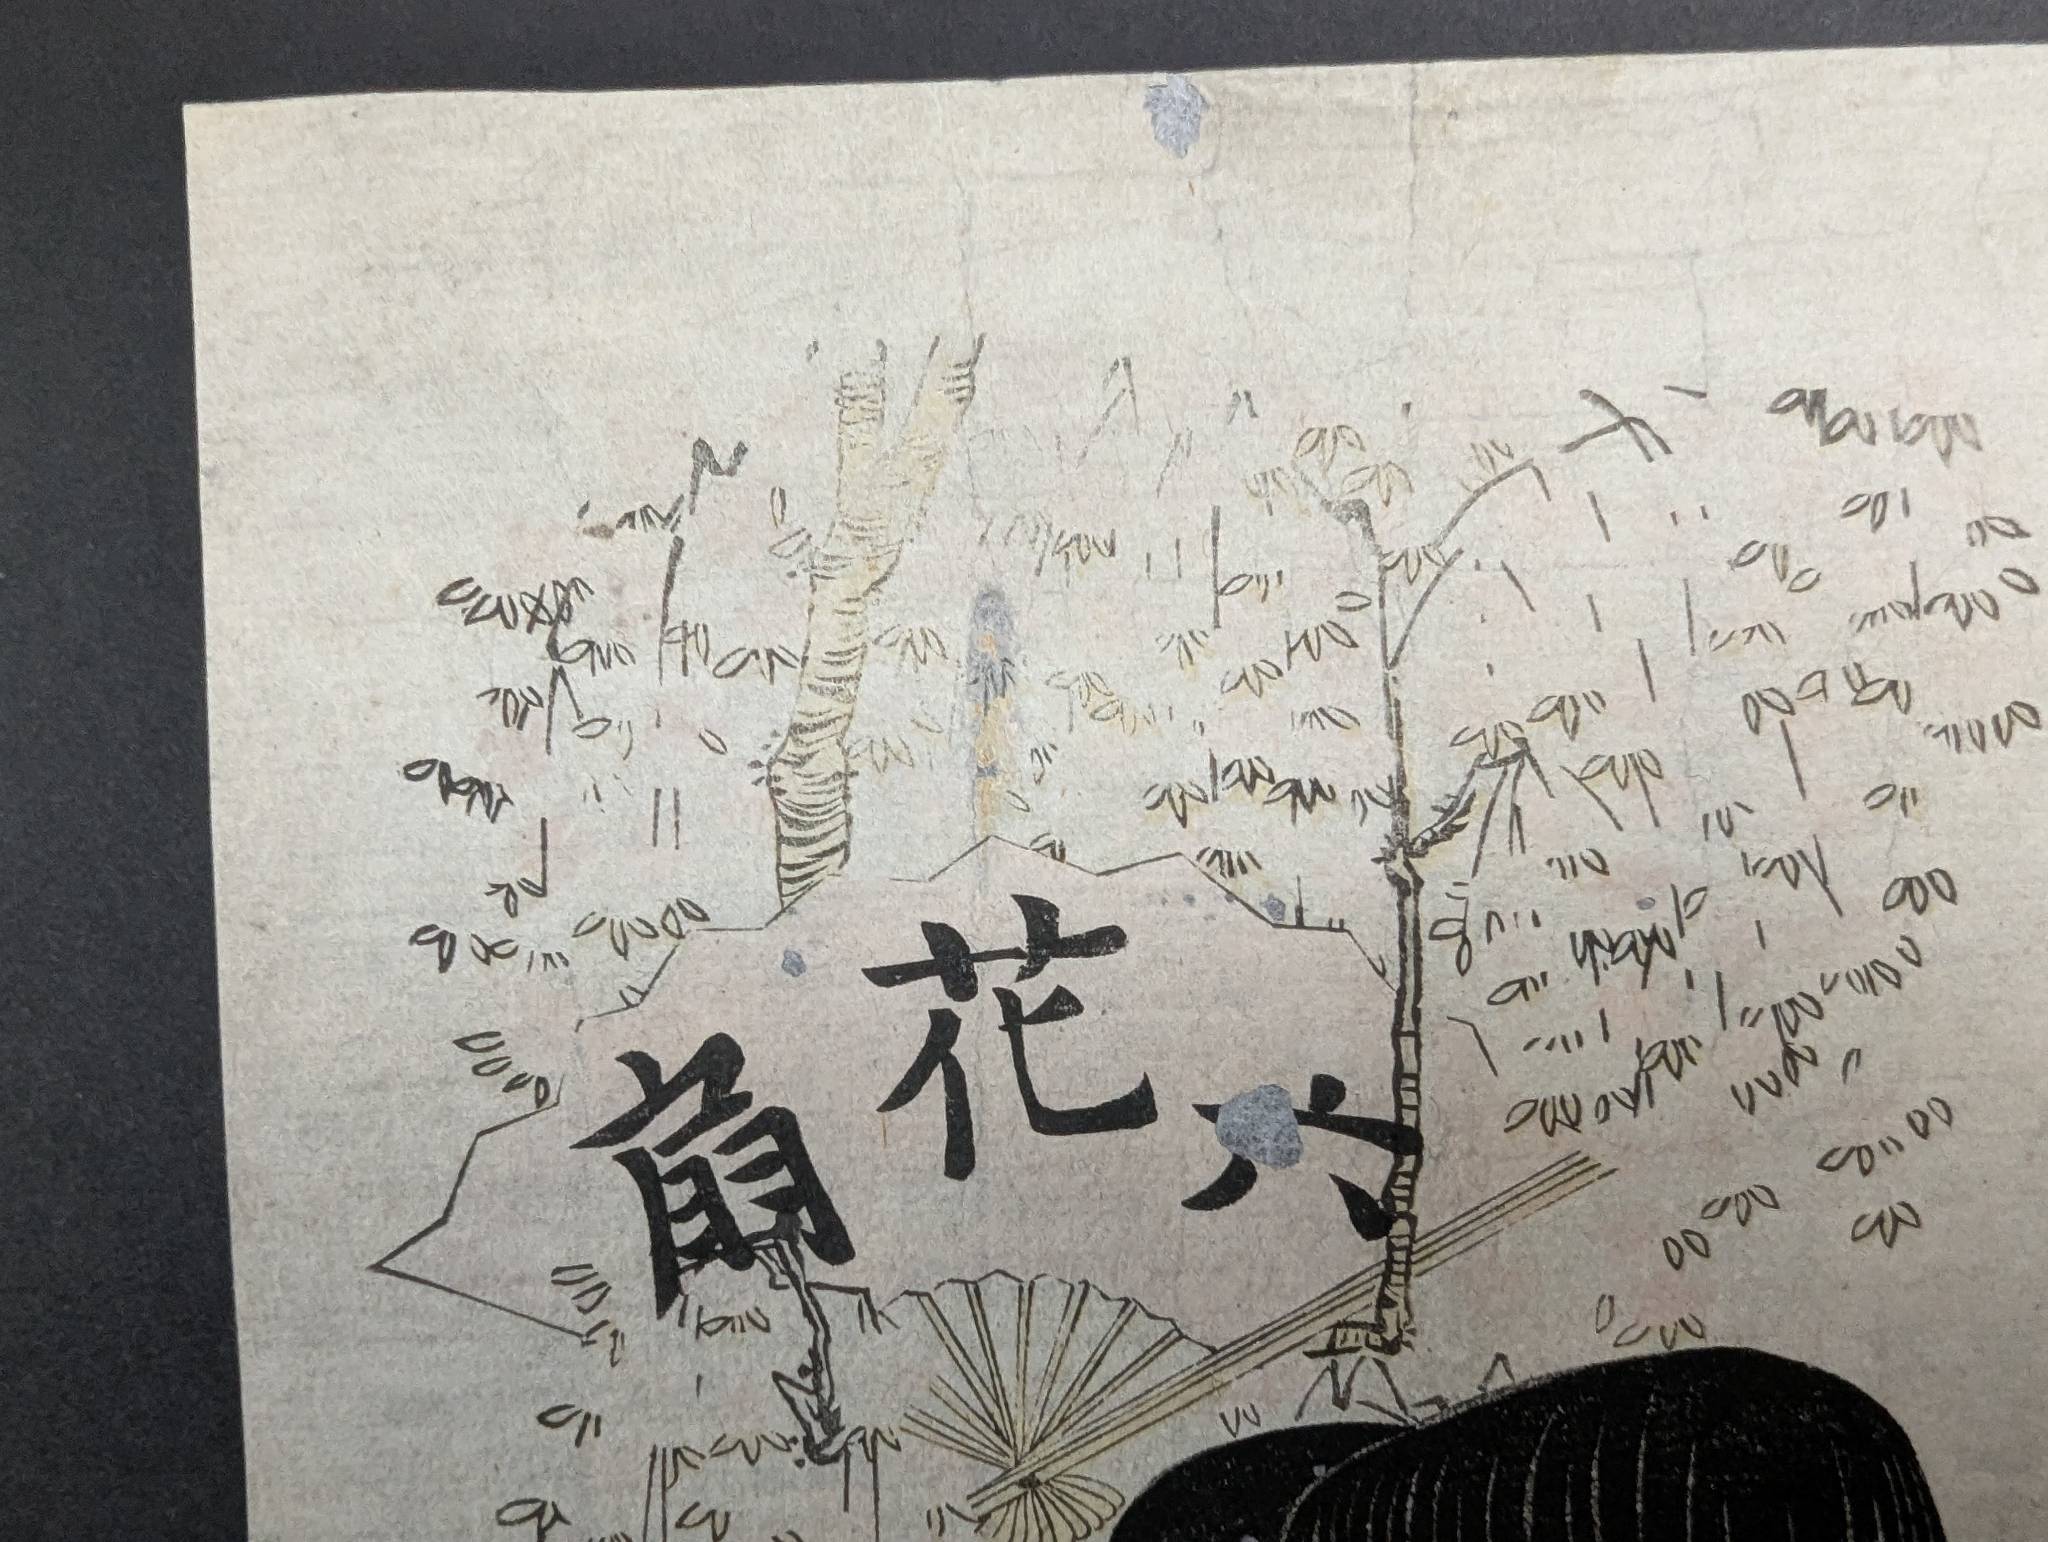 六花扇